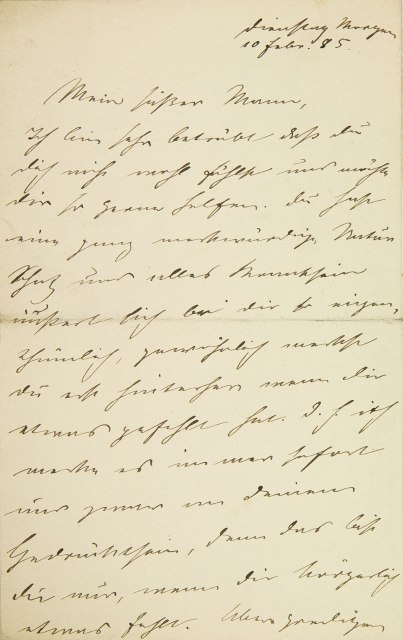 Dienstag Morgen
10 Febr. 85.
Mein süßer Mann,
Ich bin sehr betrübt daß du
dich nicht wohl fühlst und möchte
dir so gerne helfen. Du hast
eine ganz merkwürdige Natur
Schatz und alles Kranksein
äußert sich bei dir so eigen-
thümlich, gewöhnlich merkst
du erst hinterher wenn dir
etwas gefehlt hat. D. h. ich
merke es immer sofort
und zwar an deinem
Gedrücktsein, denn das bist
du nur, wenn dir körperlich
etwas fehlt. Aber predigen